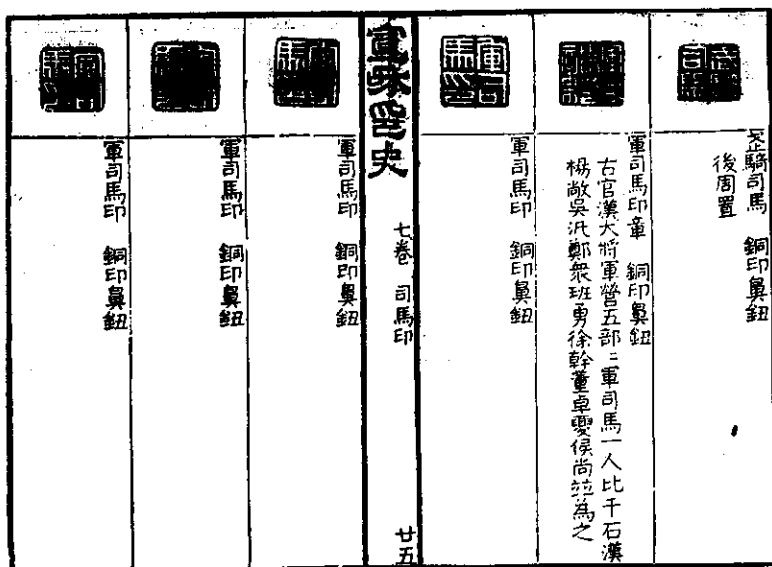 武騎司馬 銅印鼻鈕
後周置
軍司馬印章 銅印鼻鈕
右官漢大將軍營五部〻軍司馬一人比千石漢
楊敞吳汎鄭衆班勇徐幹董卓夔侯尚竝為之
軍司馬印 銅印鼻鈕
宣咊印史 七卷 司馬印 廿五
軍司馬印 銅印鼻鈕
軍司馬印 銅印鼻鈕
軍司馬印 銅印鼻鈕